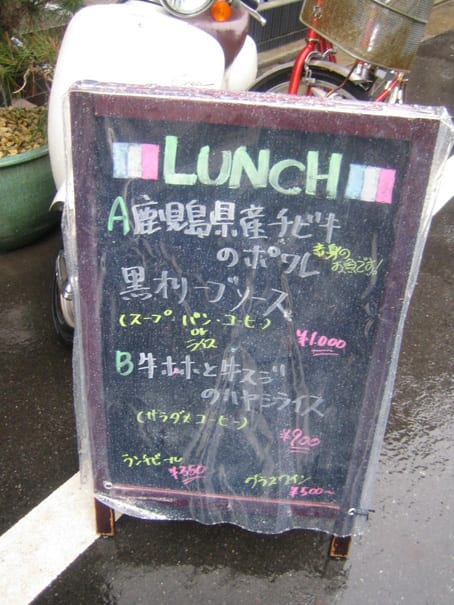 LUNCH
A 鹿児島県産チビキ
のポワレ 赤身のお魚です!
黒オリーブソース
(スープ・パン・コーヒー)
or
ライス
¥1.000
B 牛ホホと牛スジ
のハヤシライス
(サラダ・コーヒー)
¥900
ランチビール
¥350
グラスワイン
¥500~